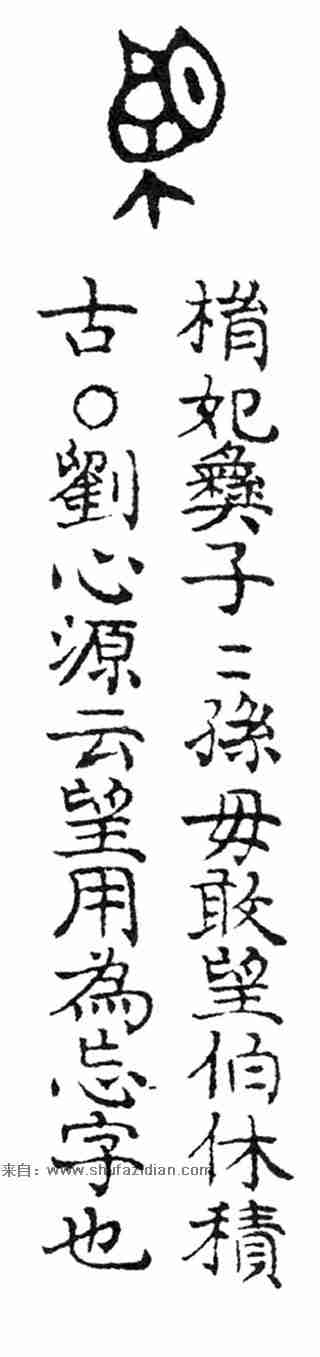 妃彝子二孫毋敢望伯休積
古○劉心源云望用為忘字也
来自：www.shufazidian.com